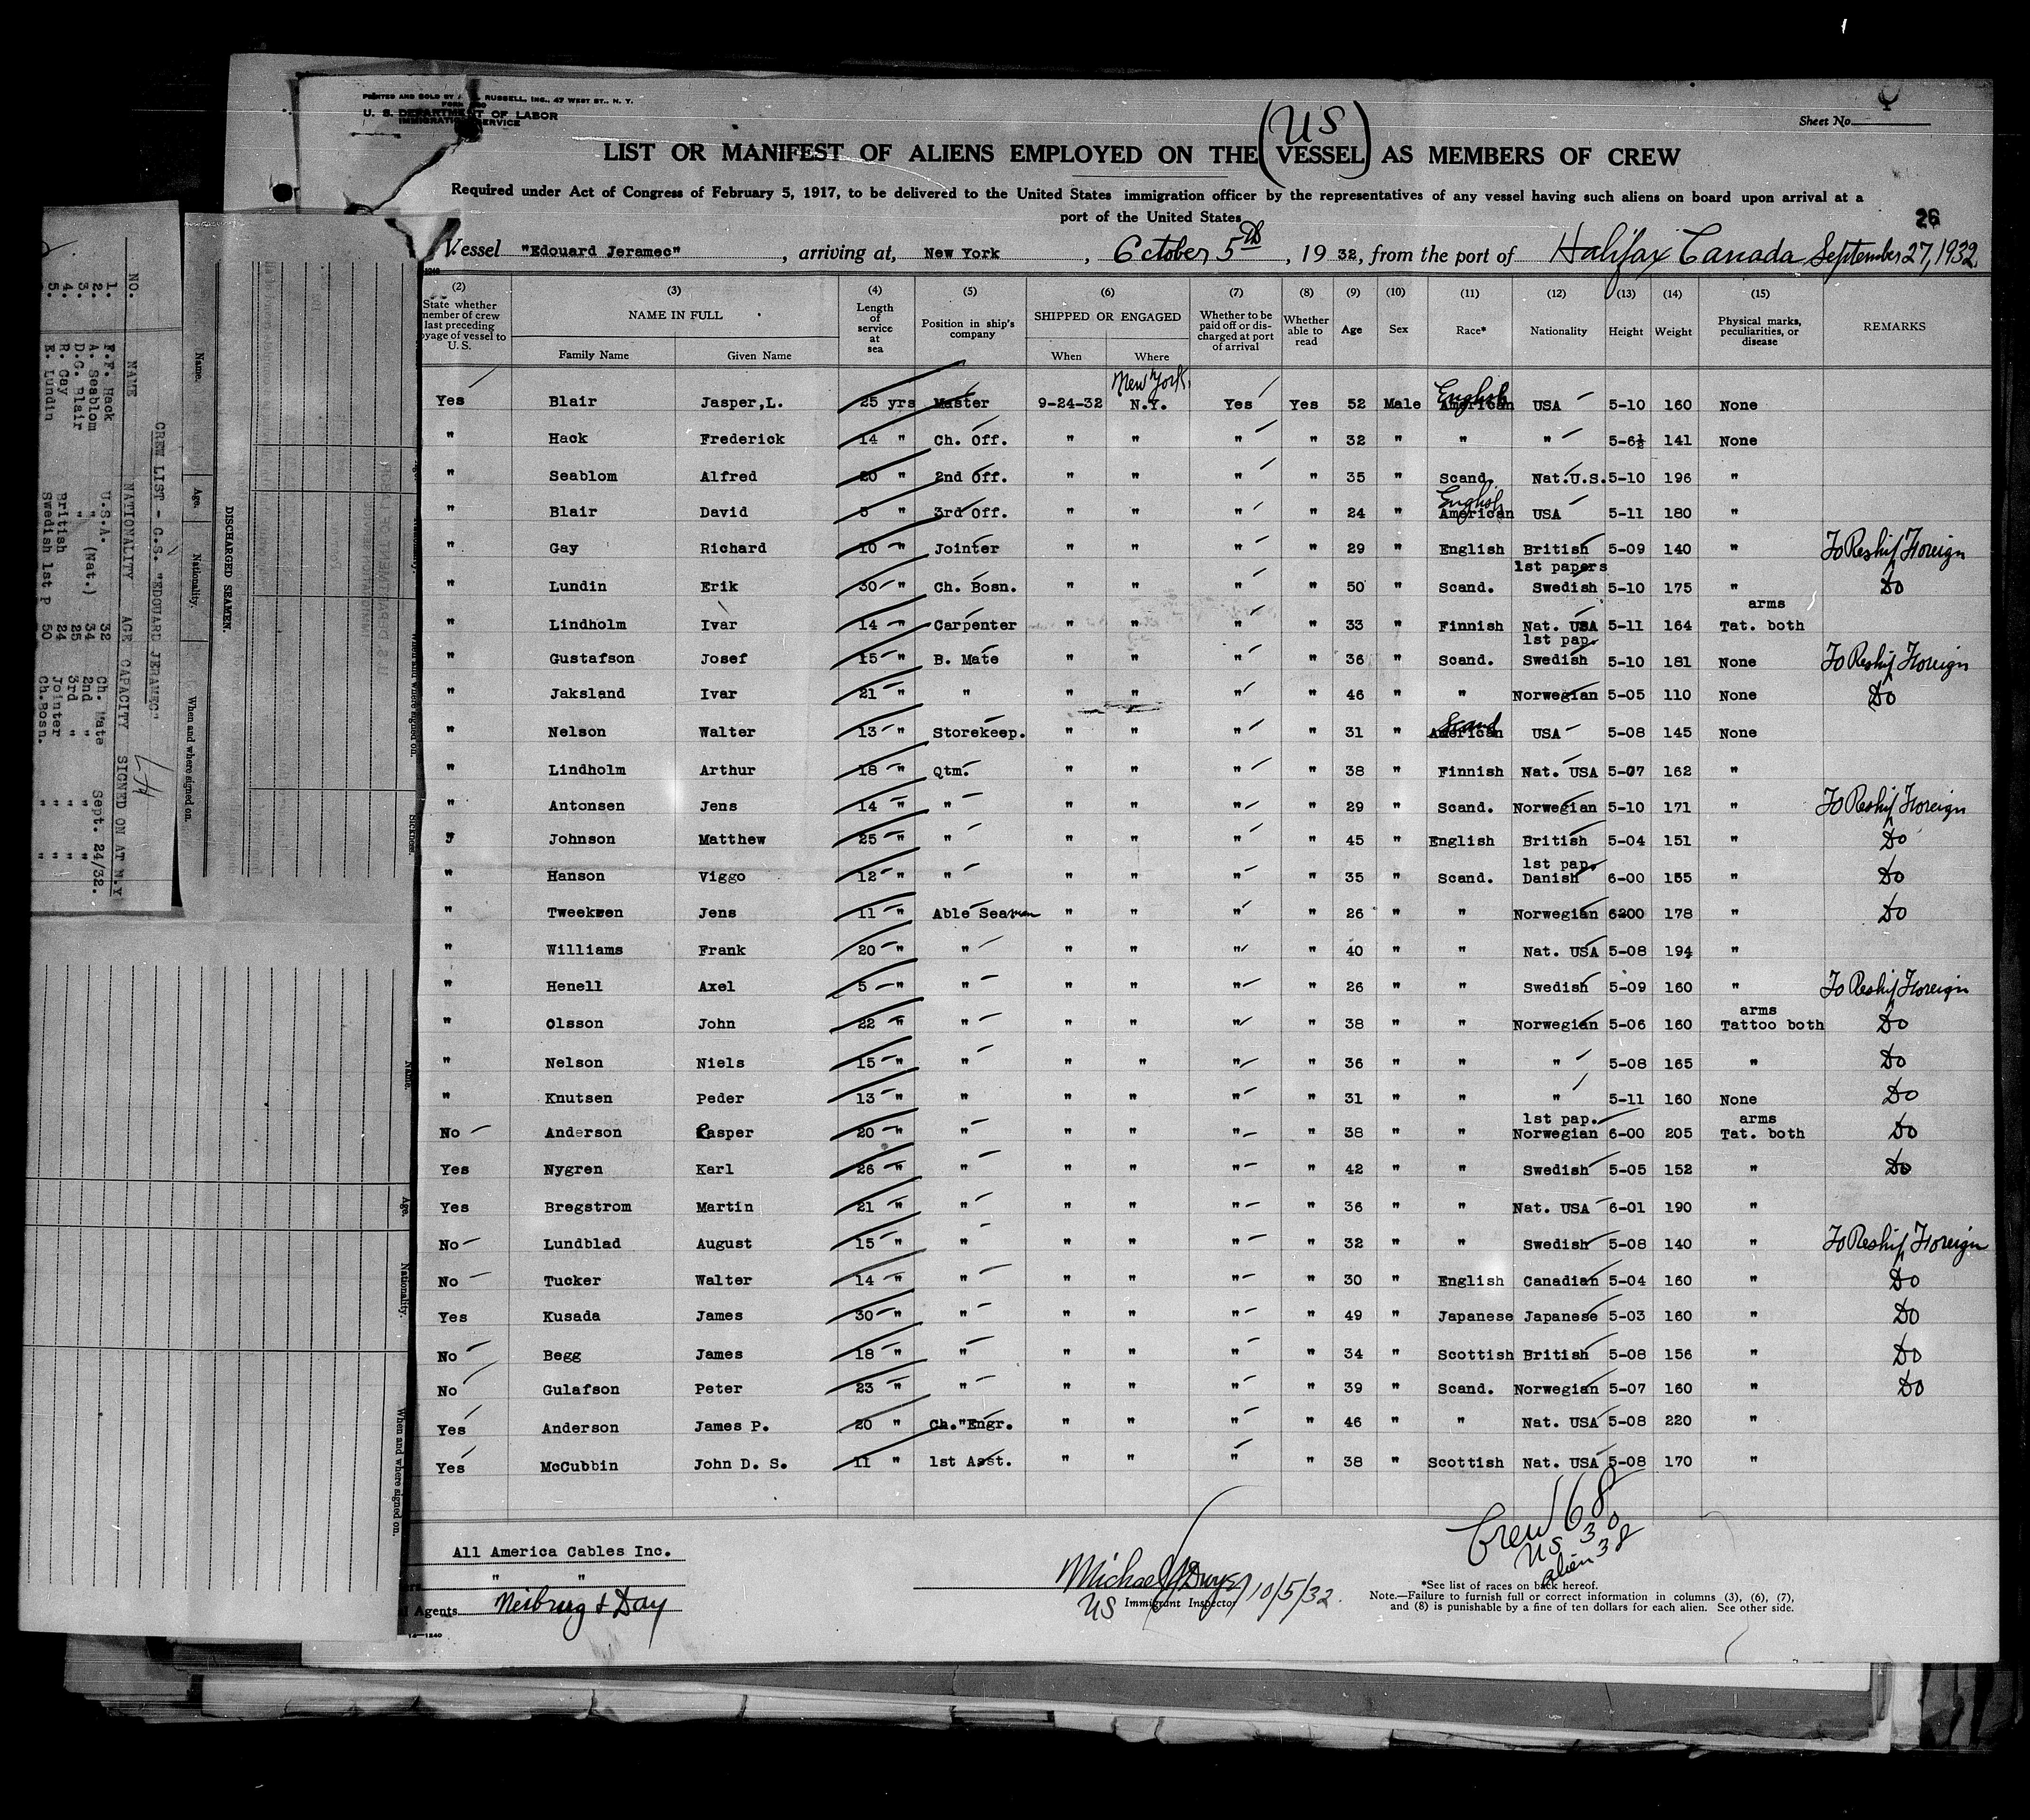 PRINTED AND SOLD BY RUSSELL, INC., 47 WEST ST., N. Y.
U. S. DEPARTMENT OF LABOR
IMMIGRATION SERVICE
Sheet No.
(US)
LIST OR MANIFEST OF ALIENS EMPLOYED ON THE VESSEL AS MEMBERS OF CREW
Required under Act of Congress of February 5, 1917, to be delivered to the United States immigration officer by the representatives of any vessel having such aliens on board upon arrival at a
port of the United States
26
Vessel "Edouard Jeramec", arriving at, New York, October 5th, 1932, from the port of Halifax Canada September 27, 1932
(2) (3) (4) (5) (6) (7) (8) (9) (10) (11) (12) (13) (14) (15)
State whether member of crew last preceding voyage of vessel to U.S. | NAME IN FULL Family Name Given Name | Length of service at sea | Position in ship's company | SHIPPED OR ENGAGED When Where | Whether to be paid off or discharged at port of arrival | Whether able to read | Age | Sex | Race* | Nationality | Height | Weight | Physical marks, peculiarities, or disease | REMARKS
New York English
Yes Blair Jasper,L. 25 yrs Master 9-24-32 N.Y. Yes Yes 52 Male American USA 5-10 160 None
" Hack Frederick 14 " Ch. Off. " " " " 32 " " " 5-6½ 141 None
" Seablom Alfred 20 " 2nd Off. " " " " 35 " Scand. Nat.U.S. 5-10 196 "
English
" Blair David 5 " 3rd Off. " " " " 24 " American USA 5-11 180 "
" Gay Richard 10 " Jointer " " " " 29 " English British 5-09 140 " To Reship Foreign
1st papers
" Lundin Erik 30 " Ch. Bosn. " " " " 50 " Scand. Swedish 5-10 175 " Do
arms
" Lindholm Ivar 14 " Carpenter " " " " 33 " Finnish Nat. USA 5-11 164 Tat. both
1st pap.
" Gustafson Josef 15 " B. Mate " " " " 36 " Scand. Swedish 5-10 181 None To Reship Foreign
" Jaksland Ivar 21 " " " " " " 46 " " Norwegian 5-05 110 None Do
Scand
" Nelson Walter 13 " Storekeep. " " " " 31 " American USA 5-08 145 None
" Lindholm Arthur 18 " Qtm. " " " " 38 " Finnish Nat. USA 5-07 162 "
" Antonsen Jens 14 " " " " " " 29 " Scand. Norwegian 5-10 171 " To Reship Foreign
" Johnson Matthew 25 " " " " " " 45 " English British 5-04 151 " Do
1st pap.
" Hanson Viggo 12 " " " " " " 35 " Scand. Danish 6-00 155 " Do
" Tweeksen Jens 11 " Able Seaman " " " " 26 " " Norwegian 6200 178 " Do
" Williams Frank 20 " " " " " " 40 " " Nat. USA 5-08 194 "
" Henell Axel 5 " " " " " " 26 " " Swedish 5-09 160 " To Reship Foreign
arms
" Olsson John 22 " " " " " " 38 " " Norwegian 5-06 160 Tattoo both Do
" Nelson Niels 15 " " " " " " 36 " " " 5-08 165 " Do
" Knutsen Peder 13 " " " " " " 31 " " " 5-11 160 None Do
1st pap. arms
No Anderson Kasper 20 " " " " " " 38 " " Norwegian 6-00 205 Tat. both Do
Yes Nygren Karl 26 " " " " " " 42 " " Swedish 5-05 152 " Do
Yes Bregstrom Martin 21 " " " " " " 36 " " Nat. USA 6-01 190 "
No Lundblad August 15 " " " " " " 32 " " Swedish 5-08 140 " To Reship Foreign
No Tucker Walter 14 " " " " " " 30 " English Canadian 5-04 160 " Do
Yes Kusada James 30 " " " " " " 49 " Japanese Japanese 5-03 160 " Do
No Begg James 18 " " " " " " 34 " Scottish British 5-08 156 " Do
No Gulafson Peter 23 " " " " " " 39 " Scand. Norwegian 5-07 160 " Do
Yes Anderson James P. 20 " Ch. Engr. " " " " 46 " " Nat. USA 5-08 220 "
Yes McCubbin John D. S. 11 " 1st Asst. " " " " 38 " Scottish Nat. USA 5-08 170 "
Crew 68
US 30
alien 38
All America Cables Inc.
" "
Agents Neibrug & Day
Michael J Dwyer 10/5/32
US Immigrant Inspector
*See list of races on back hereof.
Note.—Failure to furnish full or correct information in columns (3), (6), (7),
and (8) is punishable by a fine of ten dollars for each alien. See other side.
14—1240
CREW LIST - C.S. "EDOUARD JERAMEC"
NO. NAME NATIONALITY AGE CAPACITY SIGNED ON AT N.Y
1. F.F. Hack U.S.A. 32 Ch. Mate Sept. 24/32.
2. A. Seablom " (Nat.) 34 2nd " "
3. D.C. Blair " 25 3rd " "
4. R. Gay British 24 Jointer "
5. E. Lundin Swedish 1st P 50 Ch.Bosn. "
DISCHARGED SEAMEN.
Name. Age. Nationality. When and where signed on.
Name. Age. Nationality. When and where signed on.